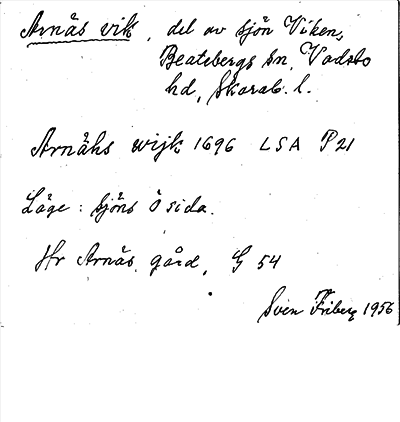 Arnäs vik, del av sjön Viken,
Beatebergs sn, Vadsbo
hd, Skarab. l.
Arnähs wijk 1696 LSA P 21
Läge: sjöns Ö sida.
Hr Arnäs gård, G 54
Sven Friberg 1956